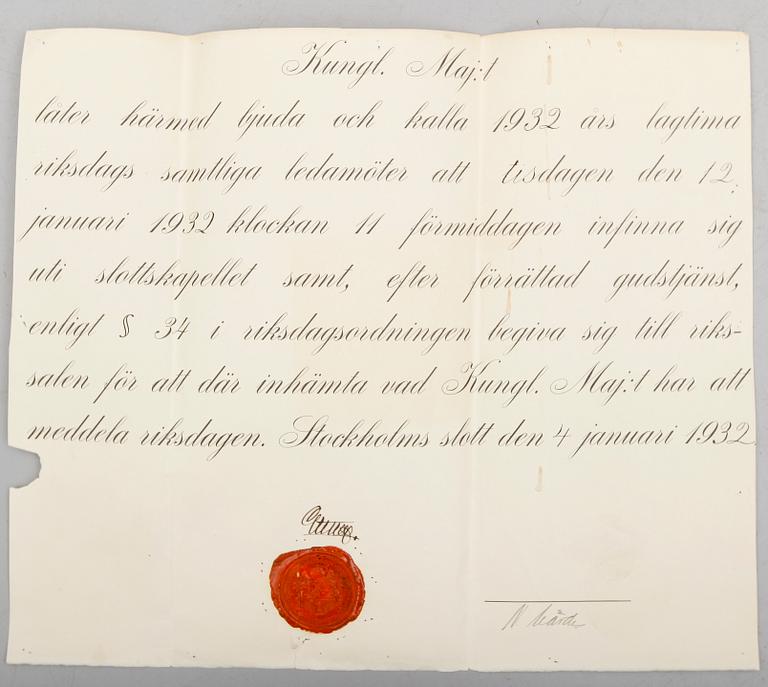 Kungl. Maj:t
låter härmed bjuda och kalla 1932 års lagtima
riksdags samtliga ledamöter att tisdagen den 12
januari 1932 klockan 11 förmiddagen infinna sig
uti slottskapellet samt, efter förrättad gudstjänst,
enligt § 34 i riksdagsordningen begiva sig till riks-
salen för att där inhämta vad Kungl. Maj:t har att
meddela riksdagen. Stockholms slott den 4 januari 1932